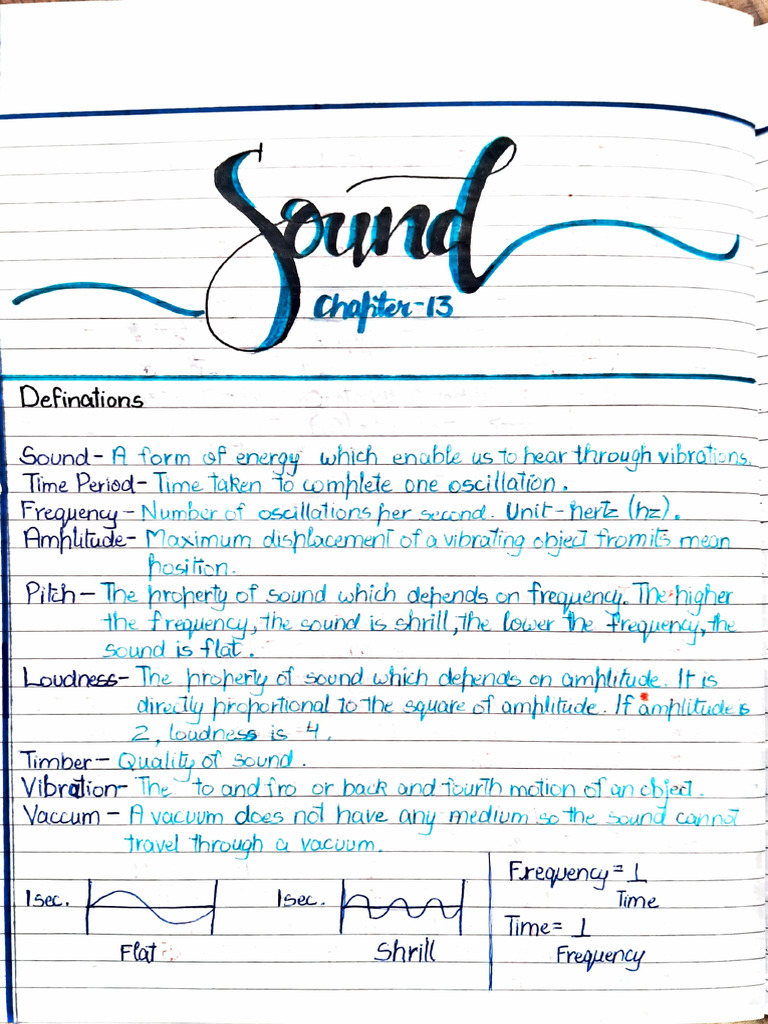 Sound
Chapter-13
Definations
Sound- A form of energy which enable us to hear through vibrations.
Time Period- Time taken to complete one oscillation.
Frequency- Number of oscillations per second. Unit-hertz (hz).
Amplitude- Maximum displacement of a vibrating object from its mean
position.
Pitch- The property of sound which depends on frequency. The higher
the frequency, the sound is shrill, the lower the frequency, the
sound is flat.
Loudness- The property of sound which depends on amplitude. It is
directly proportional to the square of amplitude. If amplitude is
2, loudness is 4.
Timber- Quality of sound.
Vibration- The to and fro or back and fourth motion of an object.
Vaccum- A vacuum does not have any medium so the sound cannot
travel through a vacuum.
1sec.
Flat
1sec.
Shrill
Frequency = 1
Time
Time = 1
Frequency